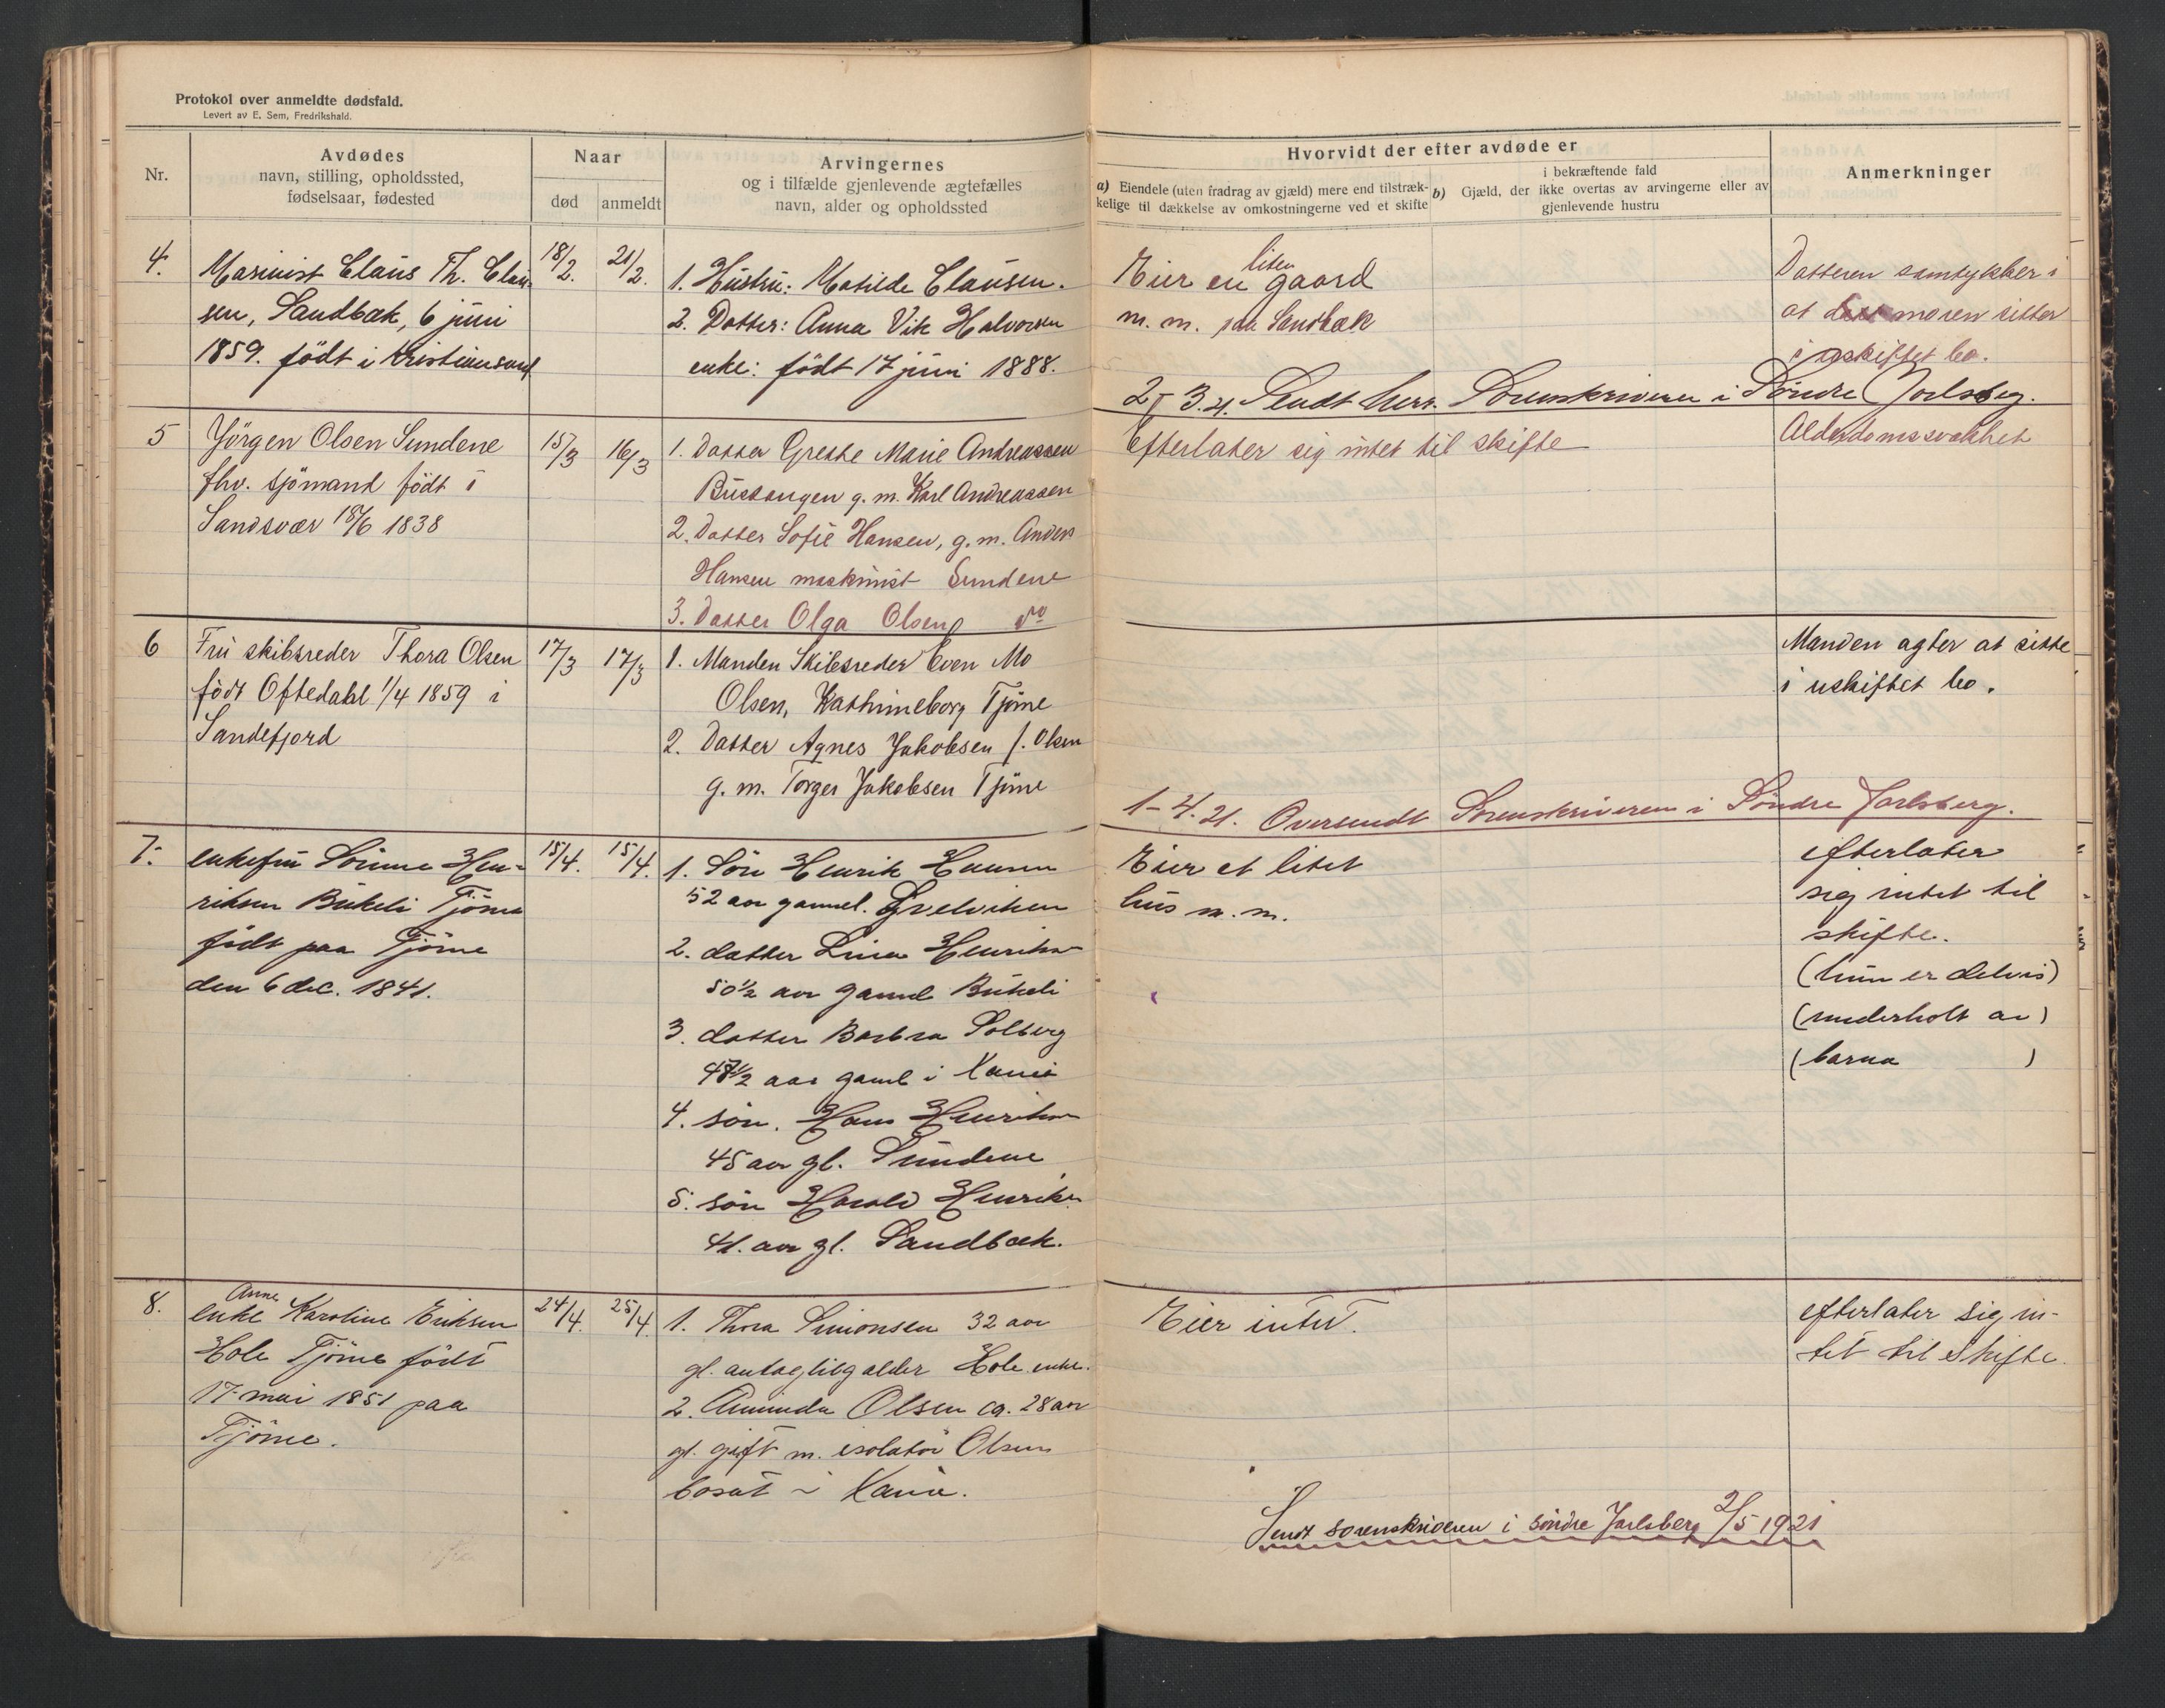 Protokol over anmeldte dødsfald.
Levert av E. Sem, Fredrikshald.
Nr.
Avdødes
navn, stilling, opholdssted,
fødselsaar, fødested
Naar
død
anmeldt
Arvingernes
og i tilfælde gjenlevende ægtefælles
navn, alder og opholdssted
Hvorvidt der efter avdøde er
a) Eiendele (uten fradrag av gjæld) mere end tilstræk-
kelige til dækkelse av omkostningerne ved et skifte
b) Gjæld, der
i bekræftende fald
ikke overtas av arvingerne eller av
gjenlevende hustru
Anmerkninger
4.
Claus Th. Clau-
sen, Sandbæk, 6 juni
1859. födt i Kristiansand
18/2.
21/2.
1. Hustru: Matilde Clausen.
2. Datter: Anna Vik Halvorsen
enke: födt 17 juni 1888.
Eier en liten gaard
m. m. paa Sandbæk
Datteren samtykker i
at moren sitter
i uskiftet bo.
2-3.21. Sendt herr Sorenskriveren i Söndre Jarlsberg.
5
Jörgen Olsen Sundene
fhv. sjömand födt i
Sandsvær 18/6 1838
15/3
16/3
1. Datter Grethe Marie Andreassen
g. m. Karl Andreassen
2. Datter Sofie Hansen, g. m. Anders
Hansen maskinist Sundene
3. Datter Olga Olsen do
Efterlater sig intet til skifte
Alderdomssvakhet
6
Fru skibsreder Thora Olsen
födt Oftedahl 1/4 1859 i
Sandefjord
17/3
17/3
1. Manden Skibsreder Even Mo
Olsen, Kathrineborg Tjöme
2. Datter Agnes Jakobsen f. Olsen
g. m. Torger Jakobsen Tjöme
Manden agter at sitte
i uskiftet bo.
1-4.21. Oversendt Sorenskriveren i Söndre Jarlsberg.
7.
enkefru Hen-
riksen Bukeli Tjöme
födt paa Tjöme
den 6 dec. 1841.
15/4.
15/4.
1. Sön Henrik Hansen
52 aar gammel.
2. datter Lina Henriksen
50½ aar gammel Bukeli
3. datter Barbra Solberg
47½ aar gamel i Kania
4. sön. Hans Henriksen
45 aar gl. Sundene
5. sön Harald Henriksen
41. aar gl. Sandbæk.
Eier et litet
hus m. m.
efterlater
sig intet til
skifte.
(hun er delvis)
(underholt av)
(barna )
8.
enke Anne Karoline Eriksen
Hole Tjöme födt
17 mai 1851 paa
Tjöme.
24/4.
25/4.
1. Thora Simonsen 32 aar
gl. antagelig alder Hole enke.
2. Olsen ca. 28 aar
gl. gift m. isolatör Olsen
bosat i Kania.
Eier intet.
efterlater sig in-
tet til skifte.
Sendt sorenskriveren i söndre Jarlsberg 2/5 1921